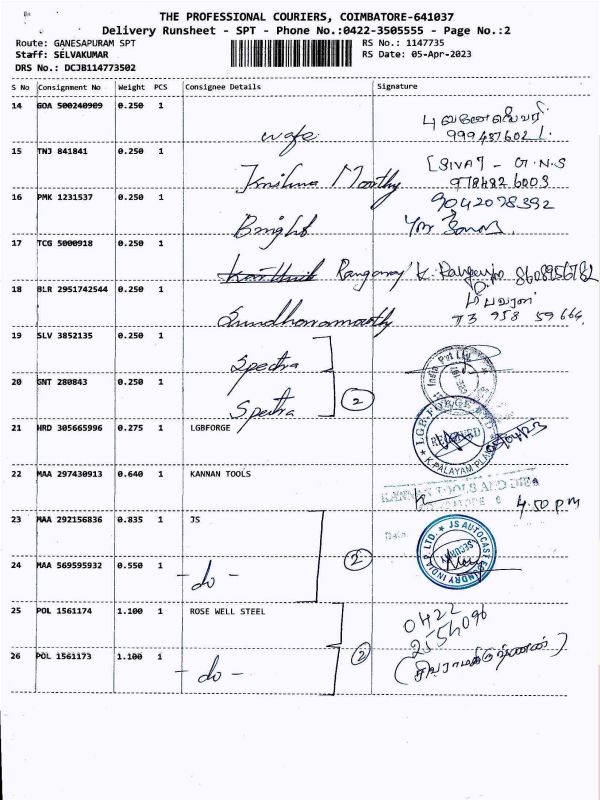 THE PROFESSIONAL COURIERS, COIMBATORE-641037
Delivery Runsheet - SPT - Phone No.:0422-3505555 - Page No.:2
Route: GANESAPURAM SPT RS No.: 1147735
Staff: SELVAKUMAR RS Date: 05-Apr-2023
DRS No.: DCJB114773502
S No Consignment No Weight PCS Consignee Details Signature
14 GOA 500240909 0.250 1
wife
15 TNJ 841841 0.250 1 [SIVA] - G.N.S
Krishna Moorthy
16 PMK 1231537 0.250 1 9042078392
Bright
17 TCG 5000918 0.250 1
Karthik
18 BLR 2951742544 0.250 1
Sundharamoorthy 958 59 664
19 SLV 3852135 0.250 1
Spectra India Pvt Ltd
20 GNT 280843 0.250 1 2
Spectra
21 HRD 305665996 0.275 1 LGBFORGE LGB FORGE LTD
RECEIVED
K.PALAYAM
22 MAA 297430913 0.640 1 KANNAN TOOLS KANNAN TOOLS AND DIES
4.50 PM
23 MAA 292156836 0.835 1 JS JS AUTOCAST FOUNDRY INDIA P. LTD.
SECURITY
24 MAA 569595932 0.550 1 2
- do -
25 POL 1561174 1.100 1 ROSE WELL STEEL 0422
2554096
26 POL 1561173 1.100 1 2 (சிவராமகிருஷ்ணன்)
- do -